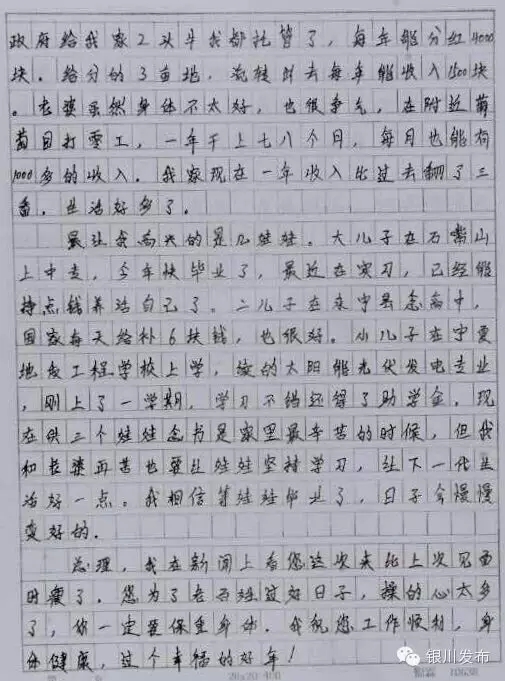 政府给我家2头牛我都托管了，每年能分红4000
块。给分的3亩地，流转出去每年能收入1500块
。老婆虽然身体不太好，也很争气，在附近葡
萄园打零工，一年干上七八个月，每月也能有
1000多的收入。我家现在一年收入比过去翻了三
番，生活好多了。
最让我高兴的是几娃娃。大儿子在石嘴山
上中专，今年快毕业了，最近在实习，已经能
挣点钱养活自己了。二儿子在永宁县念高中，
国家每天给补6块钱，也很好。小儿子在宁夏
地质工程学校上学，读的太阳能光伏发电专业
，刚上了一学期，学习不错还得了助学金，现
在供三个娃娃念书是家里最辛苦的时候，但我
和老婆再苦也要让娃娃坚持学习，让下一代生
活好一点。我相信等娃娃毕业了，日子会慢慢
变好的。
总理，我在新闻上看您这次来比上次见面
时瘦了。您为了老百姓过好日子，操的心太多
了，你一定要保重身体。我祝您工作顺利，身
体健康，过个幸福的好年！
20x20=400
银川发布